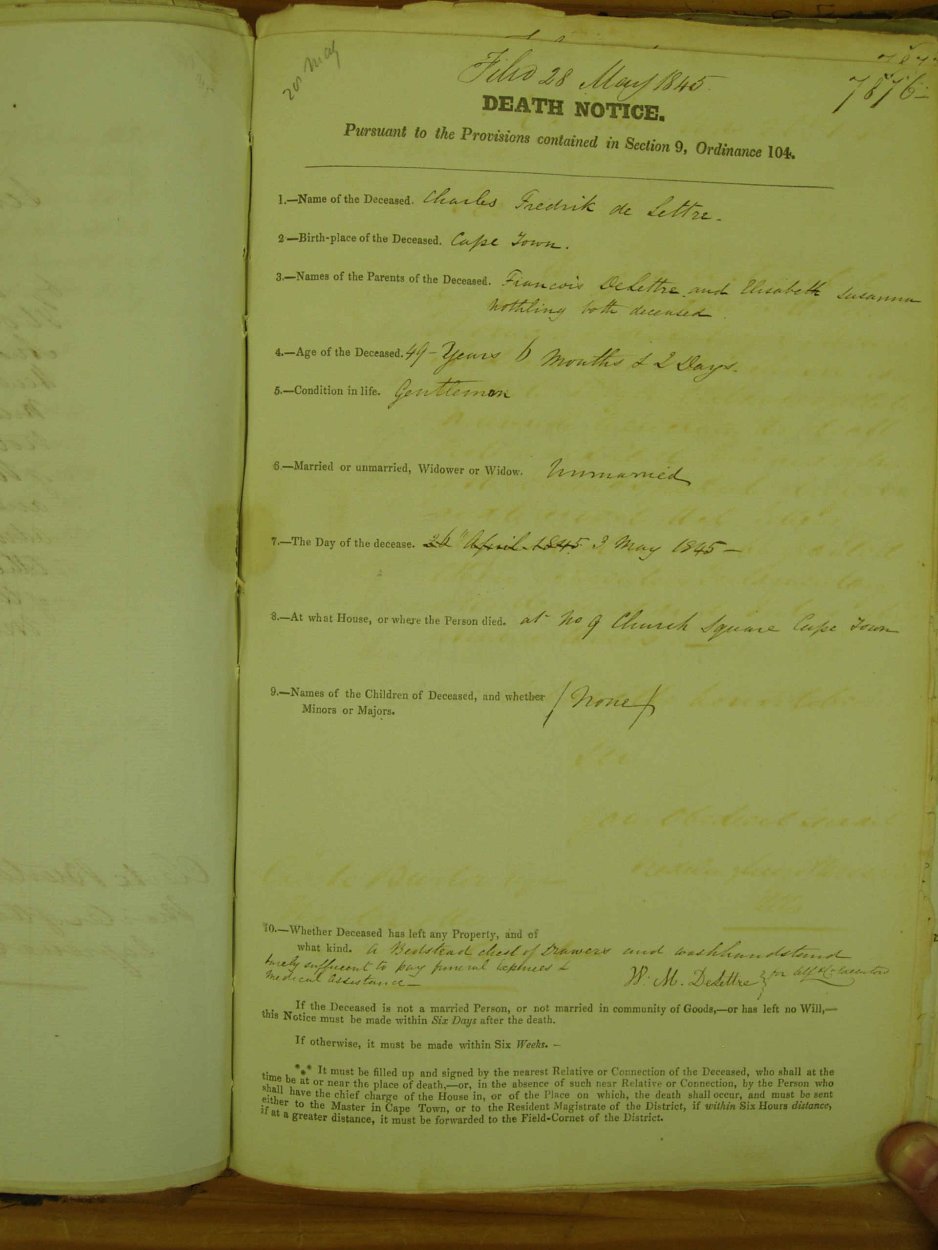 28 May
Filed 28 May 1845.
7876
DEATH NOTICE.
Pursuant to the Provisions contained in Section 9, Ordinance 104.
1.—Name of the Deceased. Charles Fredrik de Lettre.
2—Birth-place of the Deceased. Cape Town.
3.—Names of the Parents of the Deceased. Francois DeLettre and Elisabeth Susanna
Nothling both deceased
4.—Age of the Deceased. 49 - Years 6 Months & 2 Days.
5.—Condition in life. Gentleman
6.—Married or unmarried, Widower or Widow. Unmarried
7.—The Day of the decease. 26 April 1845 3 May 1845 —
8.—At what House, or where the Person died. at No 9 Church Square Cape Town
9.—Names of the Children of Deceased, and whether { None }
Minors or Majors.
10.—Whether Deceased has left any Property, and of
what kind. A Bedstead chest of Drawers and washhandstand
barely suffucent to pay funeral expenses &
Medical assistance — W. M. DeLettre } for
If the Deceased is not a married Person, or not married in community of Goods,—or has left no Will,—
this Notice must be made within Six Days after the death.
If otherwise, it must be made within Six Weeks. –
*** It must be filled up and signed by the nearest Relative or Connection of the Deceased, who shall at the
time be at or near the place of death,—or, in the absence of such near Relative or Connection, by the Person who
shall have the chief charge of the House in, or of the Place on which, the death shall occur, and must be sent
either to the Master in Cape Town, or to the Resident Magistrate of the District, if within Six Hours distance,
if at a greater distance, it must be forwarded to the Field-Cornet of the District.